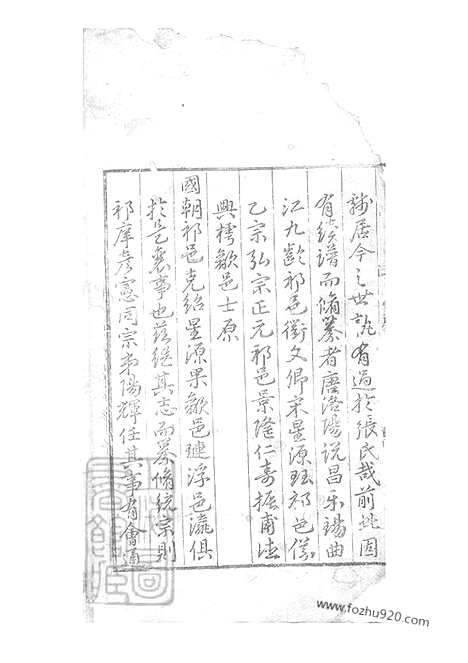 居今之世孰有過於張氏哉前此固
有統譜而脩纂者唐洛陽說昌乐瑒曲
江九齡祁邑衢文卿宋星源珏祁邑
乙宗弘宗正元祁邑景隆仁壽振甫
興樗歙邑士原
國朝祁邑克紹星源果歙邑璉浮邑瀛俱
於是襄事也茲繼其志而纂脩統宗則
祁庠彥憲同宗弟陽輝任其事有會通
www.fozhu920.com